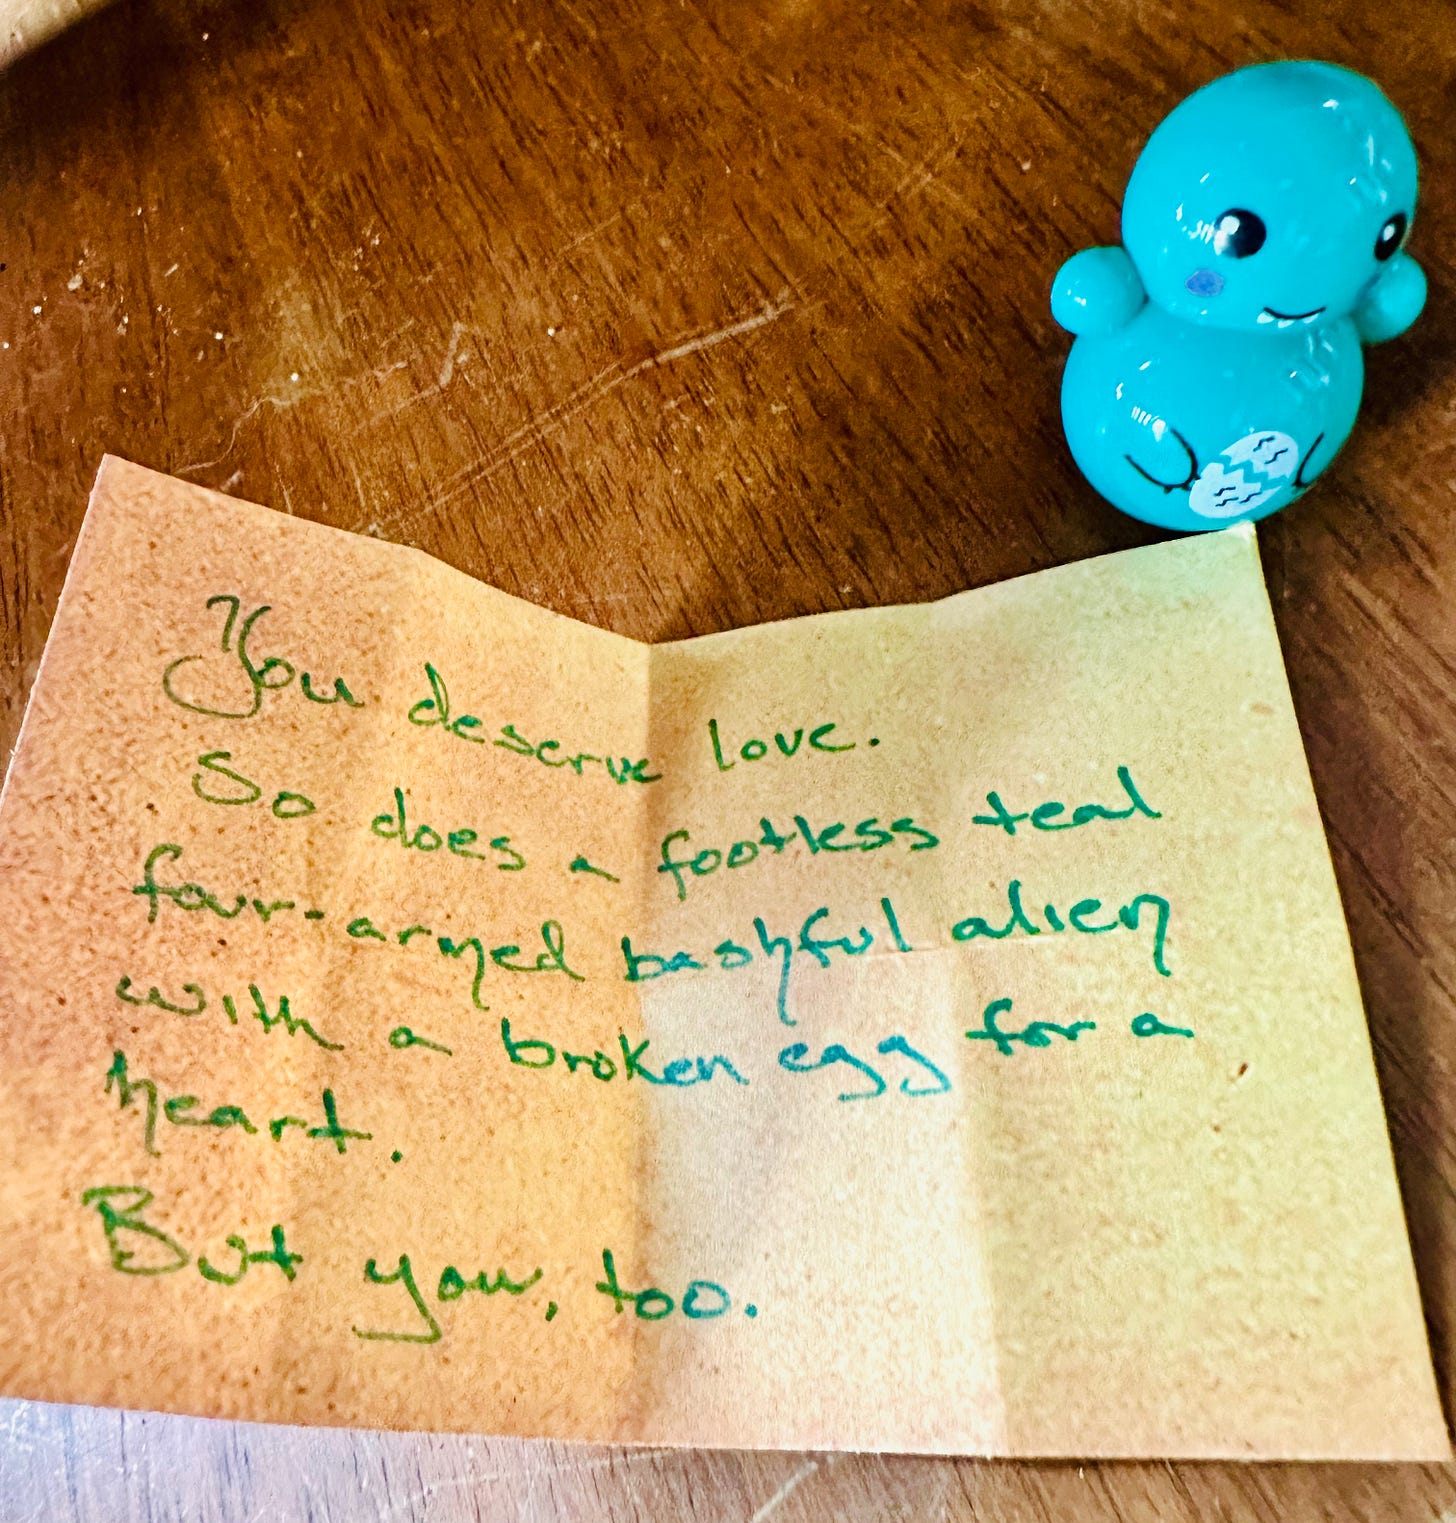 You deserve love.
So does a footless teal
four-armed bashful alien
with a broken egg for a
heart.
But you, too.